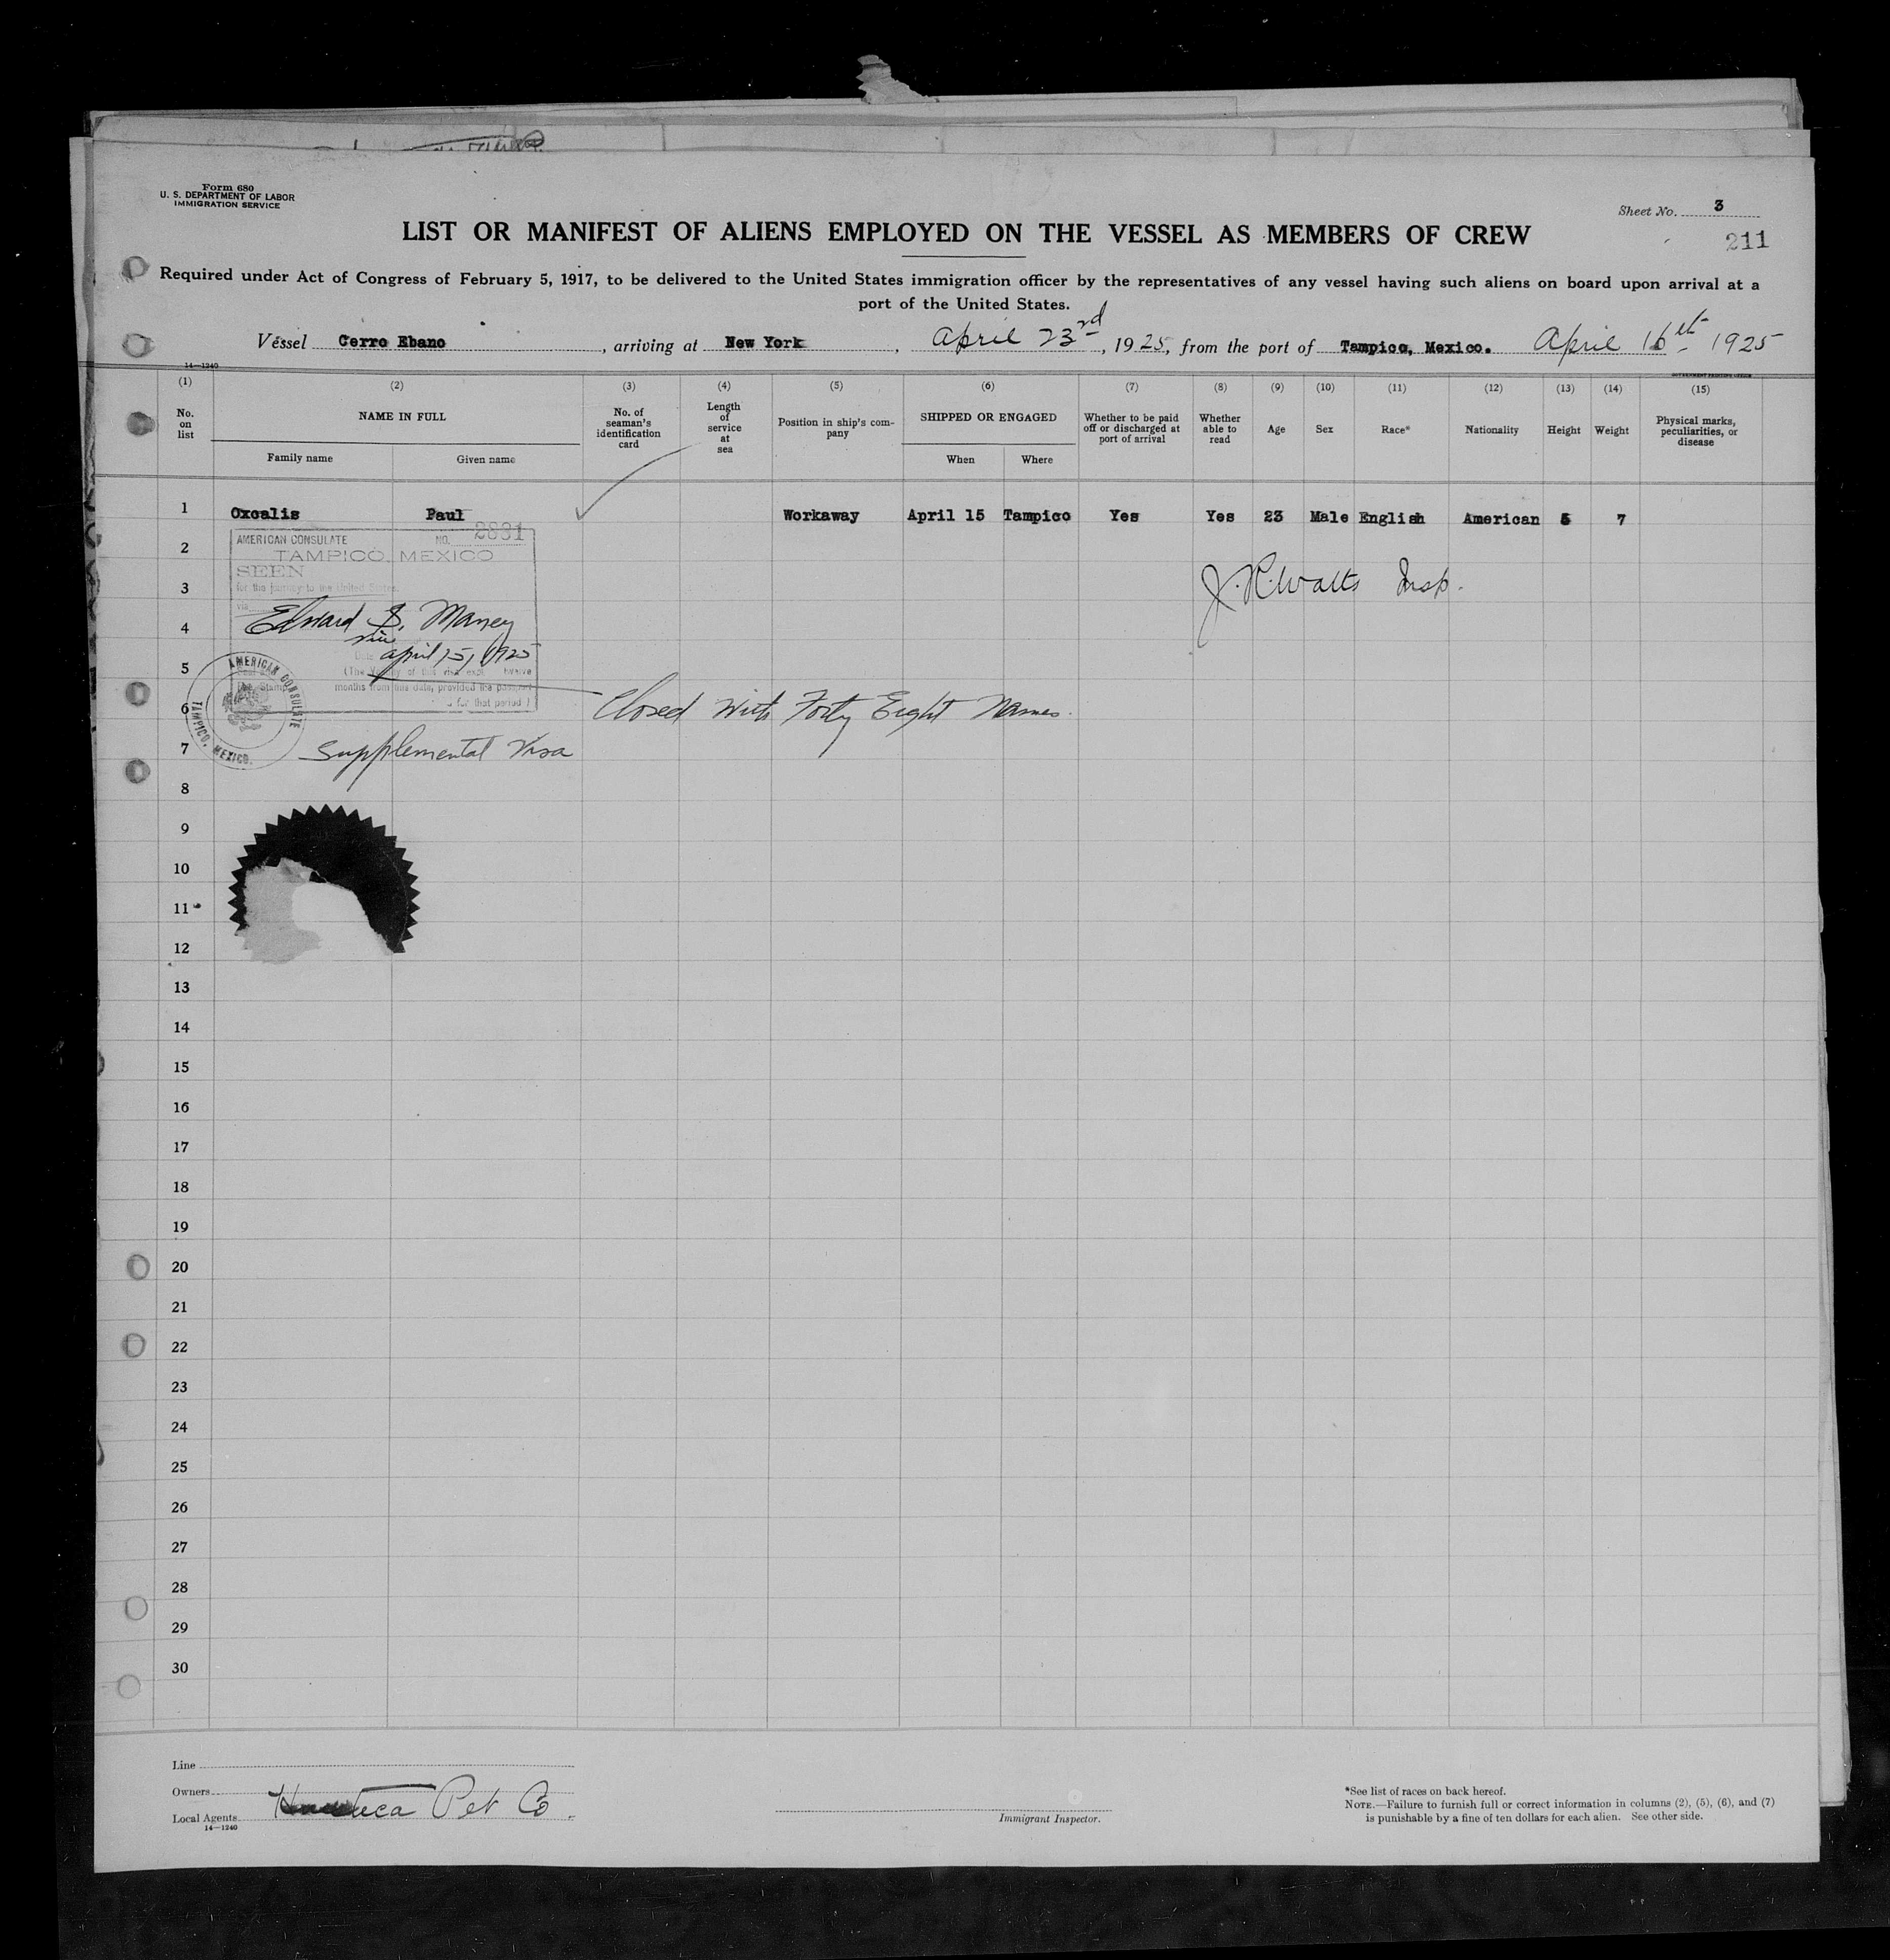 Form 680
U. S. DEPARTMENT OF LABOR
IMMIGRATION SERVICE
Sheet No. 3
LIST OR MANIFEST OF ALIENS EMPLOYED ON THE VESSEL AS MEMBERS OF CREW
211
Required under Act of Congress of February 5, 1917, to be delivered to the United States immigration officer by the representatives of any vessel having such aliens on board upon arrival at a
port of the United States.
Vessel Cerro Ebano, arriving at New York, April 23rd, 1925, from the port of Tampico, Mexico. April 16th 1925
14—1240
GOVERNMENT PRINTING OFFICE
(1) (2) (3) (4) (5) (6) (7) (8) (9) (10) (11) (12) (13) (14) (15)
No. on list
NAME IN FULL
Family name
Given name
No. of seaman's identification card
Length of service at sea
Position in ship's company
SHIPPED OR ENGAGED
When
Where
Whether to be paid off or discharged at port of arrival
Whether able to read
Age
Sex
Race*
Nationality
Height
Weight
Physical marks, peculiarities, or disease
1 Oxcalis Paul Workaway April 15 Tampico Yes Yes 23 Male English American 5 7
AMERICAN CONSULATE NO. 2881
2
TAMPICO, MEXICO
SEEN
3 for the journey to the United States.
J. R. Watts Insp.
via
4 Edward S. Maney
Date April 15, 1925
5
months from this date, provided the passport
for that period)
AMERICAN CONSULATE
TAMPICO, MEXICO.
6 Closed With Forty Eight Names.
7 Supplemental Visa
8
9
10
11
12
13
14
15
16
17
18
19
20
21
22
23
24
25
26
27
28
29
30
Line
Owners
Local Agents Huasteca Pet Co.
14—1240
Immigrant Inspector.
*See list of races on back hereof.
NOTE.—Failure to furnish full or correct information in columns (2), (5), (6), and (7)
is punishable by a fine of ten dollars for each alien. See other side.